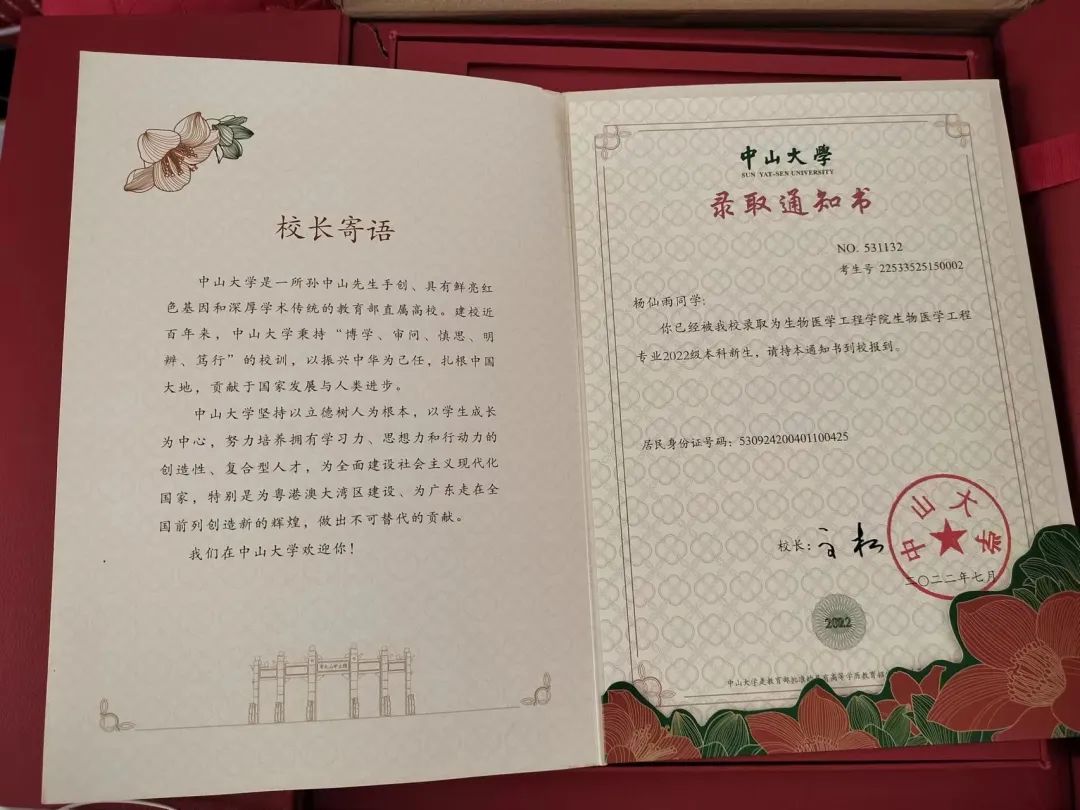 校长寄语
中山大学是一所孙中山先生手创、具有鲜亮红
色基因和深厚学术传统的教育部直属高校。建校近
百年来，中山大学秉持“博学、审问、慎思、明
辨、笃行”的校训，以振兴中华为己任，扎根中国
大地，贡献于国家发展与人类进步。
中山大学坚持以立德树人为根本，以学生成长
为中心，努力培养拥有学习力、思想力和行动力的
创造性、复合型人才，为全面建设社会主义现代化
国家，特别是为粤港澳大湾区建设、为广东走在全
国前列创造新的辉煌，做出不可替代的贡献。
我们在中山大学欢迎你！
中山大學
SUN YAT-SEN UNIVERSITY
录取通知书
NO. 531132
考生号 22533525150002
杨仙雨同学：
你已经被我校录取为生物医学工程学院生物医学工程
专业2022级本科新生，请持本通知书到校报到。
居民身份证号码：530924200401100425
校长：
中山大学
二〇二二年七月
2022
中山大学是教育部批准的具有高等学历教育招